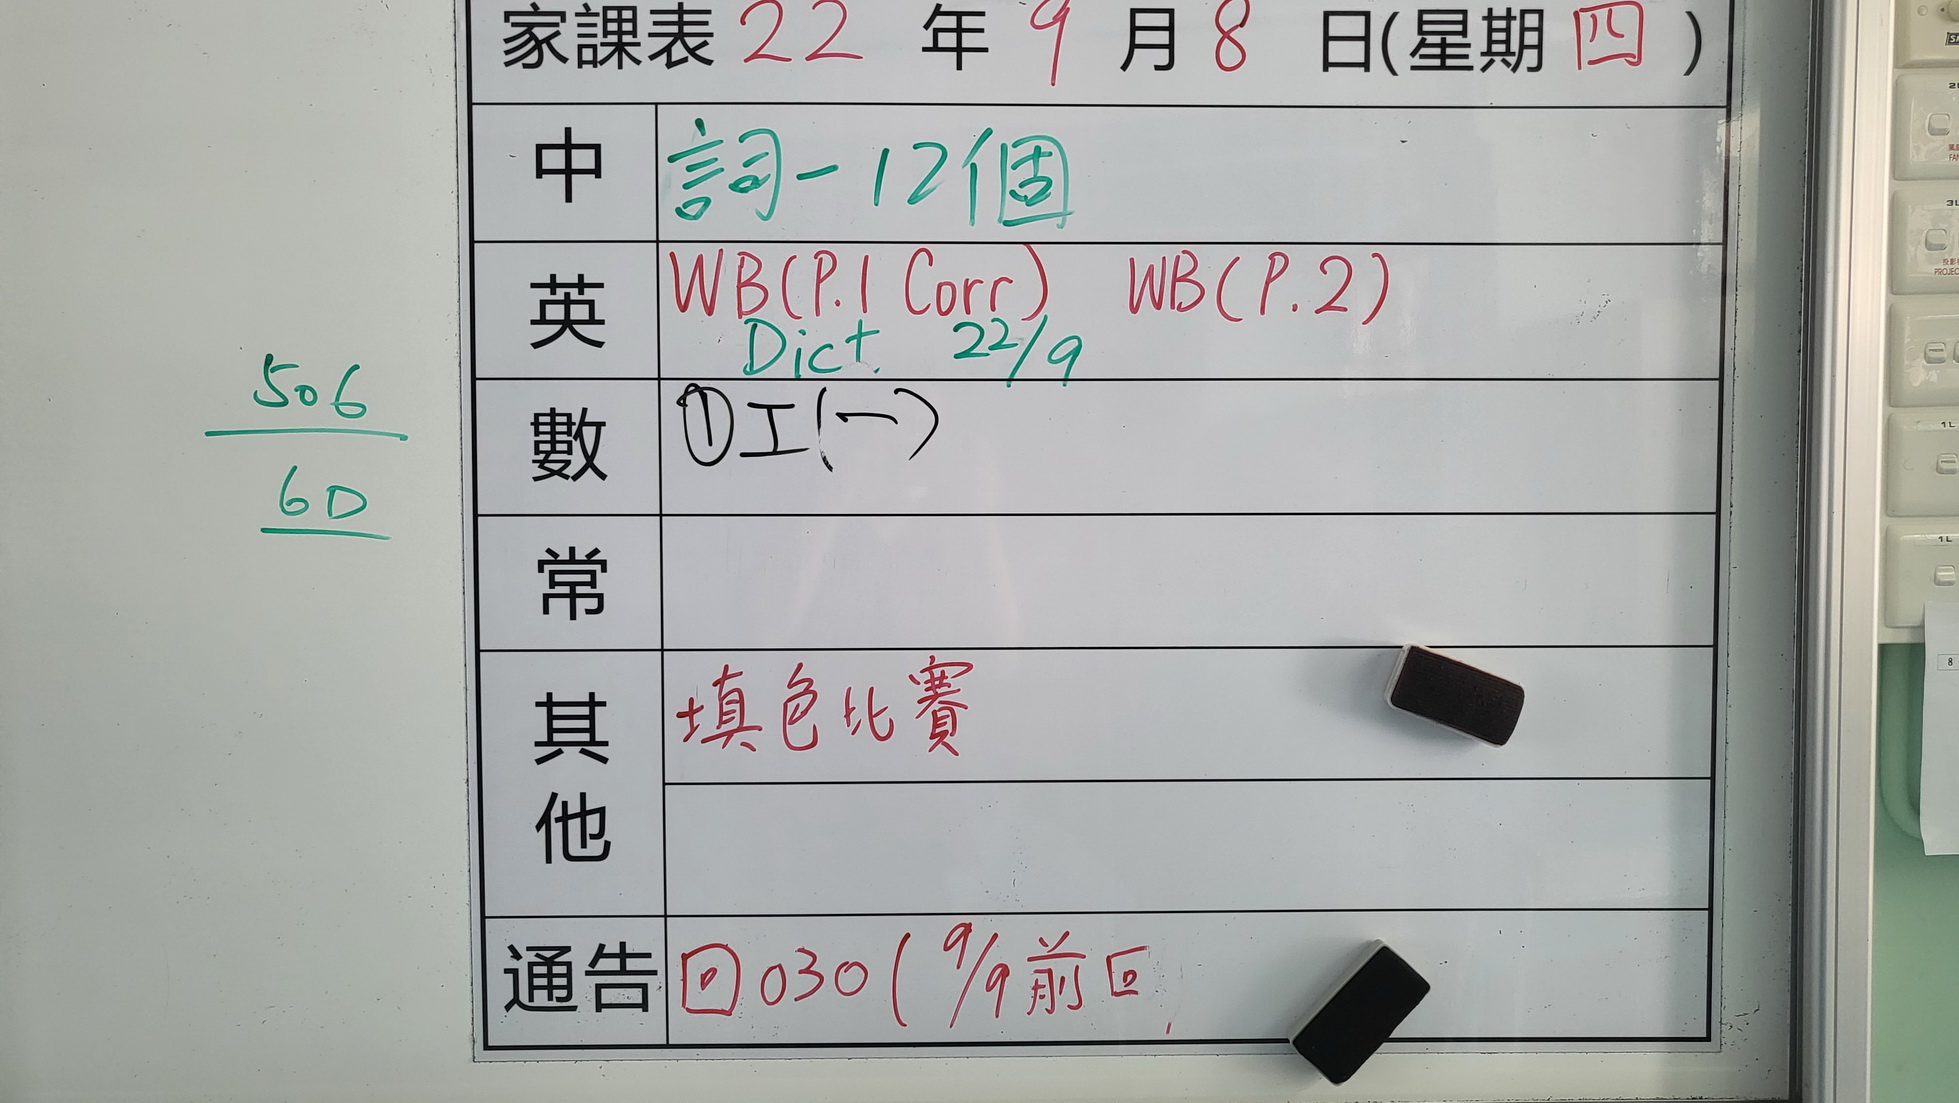 家課表 22 年 9 月 8 日(星期 四 )
中 詞-12個
英 WB(P.1 Corr) WB(P.2)
Dict. 22/9
數 ①工(一)
常
其他 填色比賽
通告 回030 ( 9/9前回
506
6D